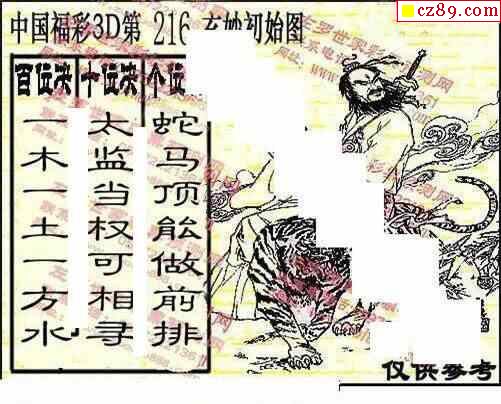 cz89.com
中国福彩3D第 216 玄妙初始图
百位决 十位决 个位
一木一土一方水
太监当权可相寻
蛇马顶能做前排
仅供参考